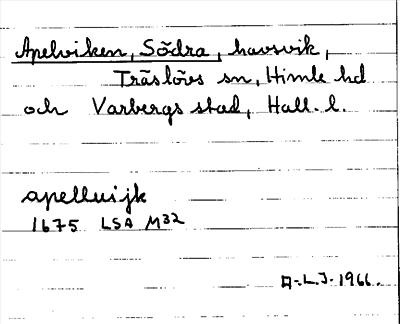 Apelviken, Södra, havsvik,
Träslövs sn, Himle hd
och Varbergs stad, Hall. l.
apelluijk
1675 LSA M32
A.-L.J. 1966.